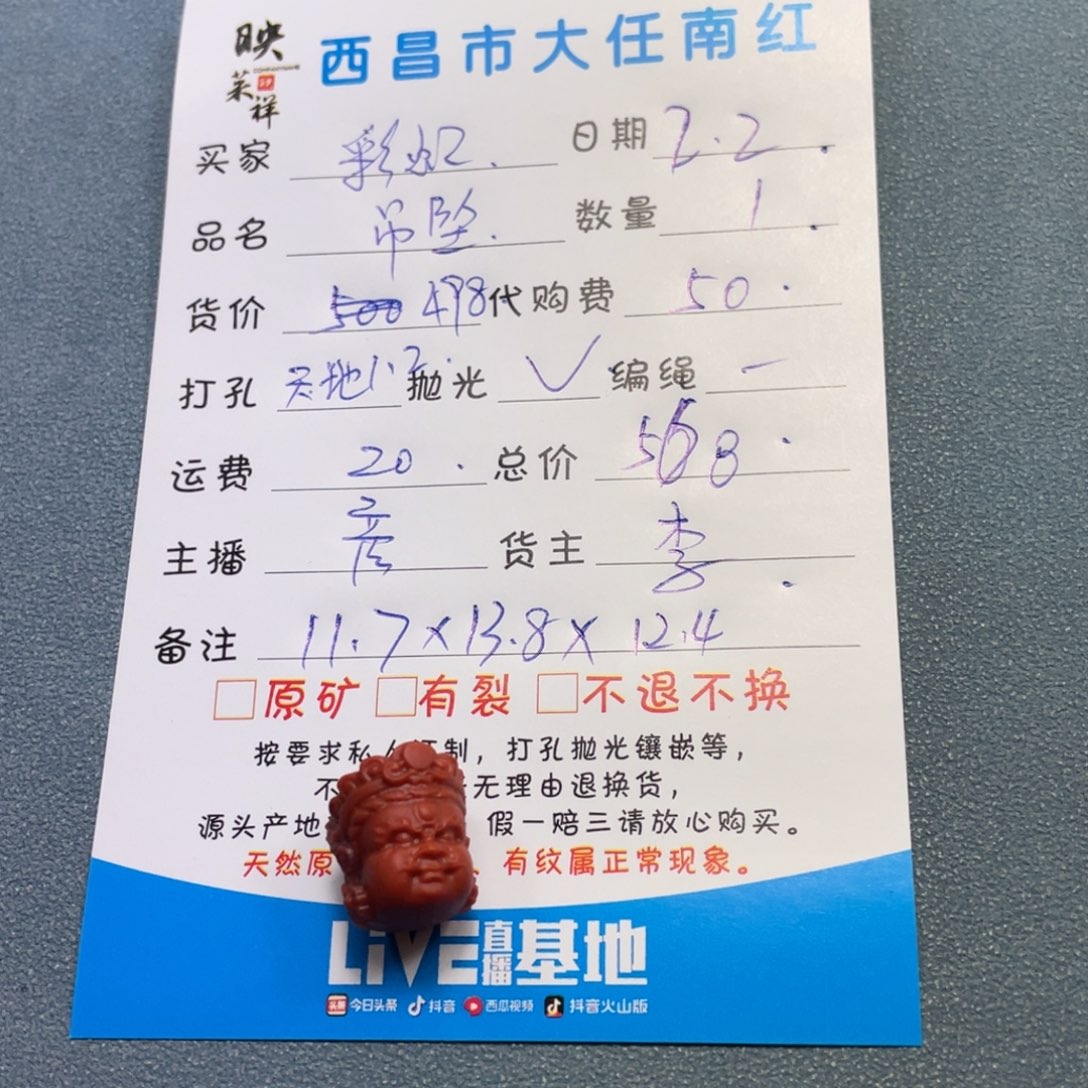 映
莱祥
西昌市大任南红
买家 彩虹. 日期 2.2.
品名 吊坠. 数量 1.
货价 500 498 代购费 50.
打孔 天地1.2. 抛光 ✓ 编绳 一
运费 20. 总价 568.
主播 彦 货主 李.
备注 11.7×13.8×12.4
□原矿 □有裂 □不退不换
按要求私 制,打孔抛光镶嵌等,
不 无理由退换货,
源头产地 假一赔三请放心购买。
天然原 有纹属正常现象。
LiVE直播基地
头条 今日头条 抖音 西瓜视频 抖音火山版